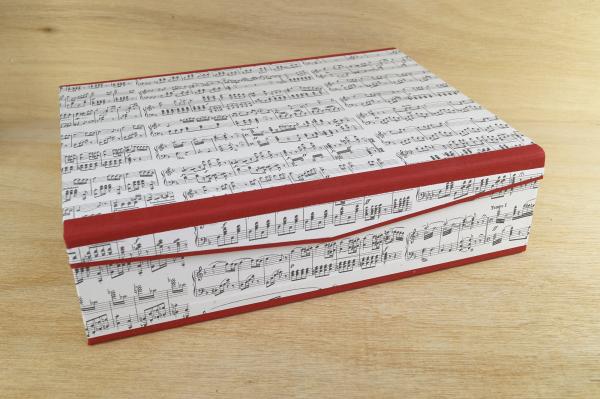 Tempo I